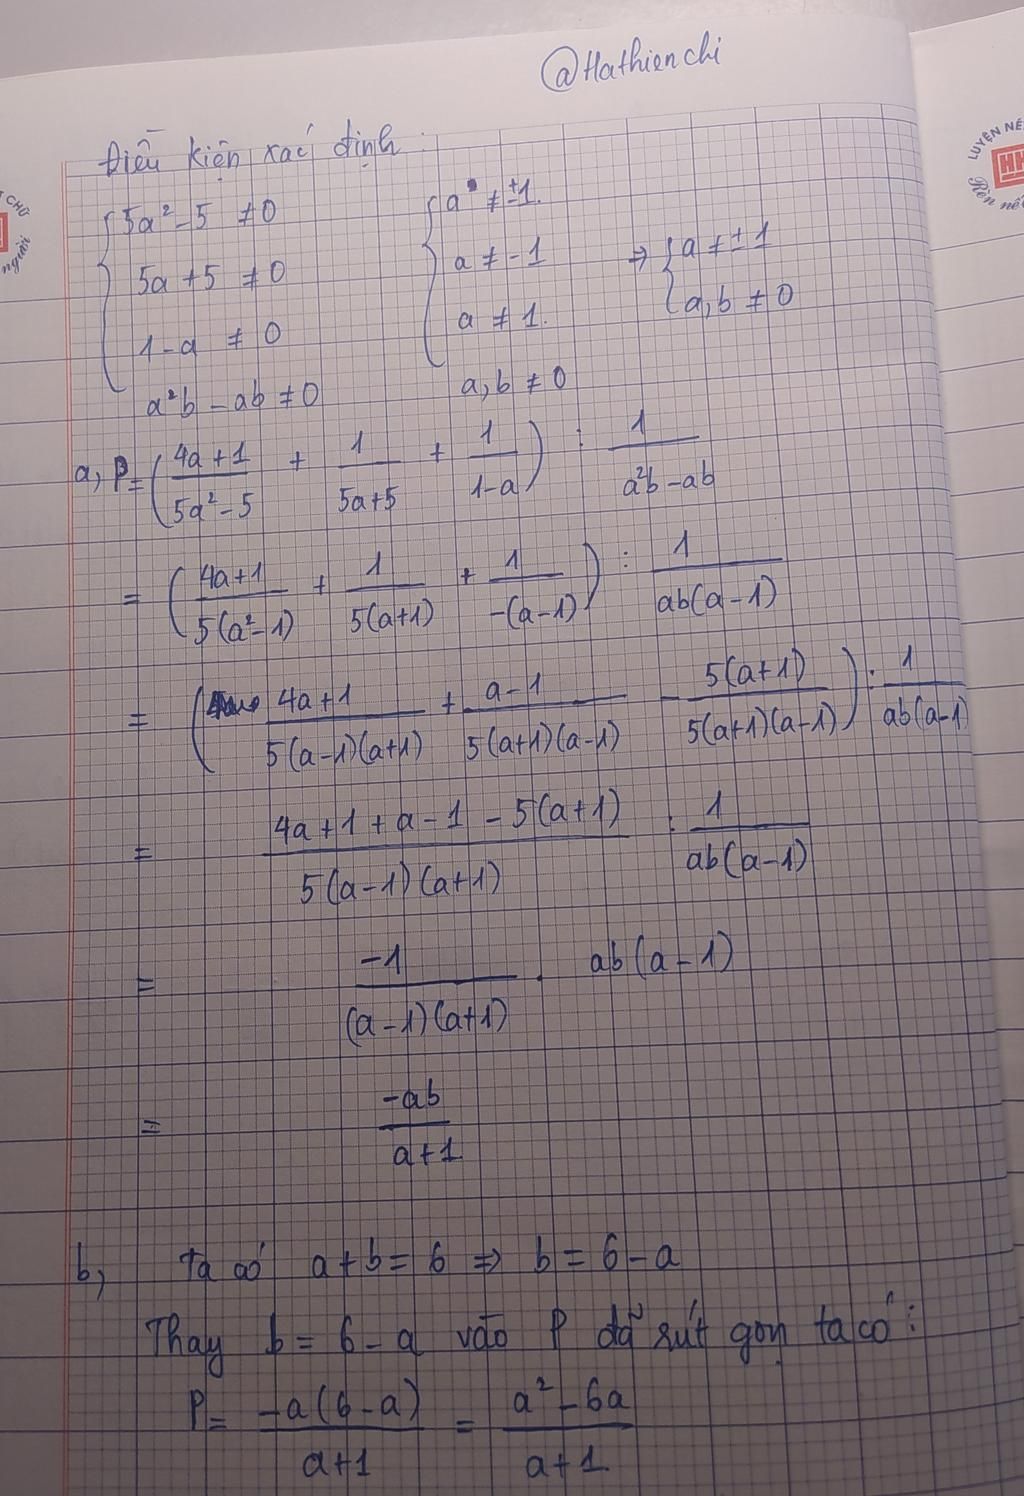 @Hathienchi
Điều kiện xác định:
{ 5a² - 5 ≠ 0 { a ≠ ±1.
5a + 5 ≠ 0 a ≠ -1 => { a ≠ ±1
1 - a ≠ 0 a ≠ 1. a, b ≠ 0
a²b - ab ≠ 0 a, b ≠ 0
a, P = ( (4a+1)/(5a²-5) + 1/(5a+5) + 1/(1-a) ) : 1/(a²b-ab)
= ( (4a+1)/(5(a²-1)) + 1/(5(a+1)) + 1/(-(a-1)) ) : 1/(ab(a-1))
= ( (4a+1)/(5(a-1)(a+1)) + (a-1)/(5(a+1)(a-1)) - (5(a+1))/(5(a+1)(a-1)) ) : 1/(ab(a-1))
= (4a+1+a-1-5(a+1))/(5(a-1)(a+1)) : 1/(ab(a-1))
= -1/((a-1)(a+1)) . ab(a-1)
= -ab/(a+1)
b, Ta có a + b = 6 => b = 6 - a
Thay b = 6 - a vào P đã rút gọn ta có:
P = (-a(6-a))/(a+1) = (a²-6a)/(a+1)
LUYỆN NÉ
HH
Rèn nế
CHỮ
người